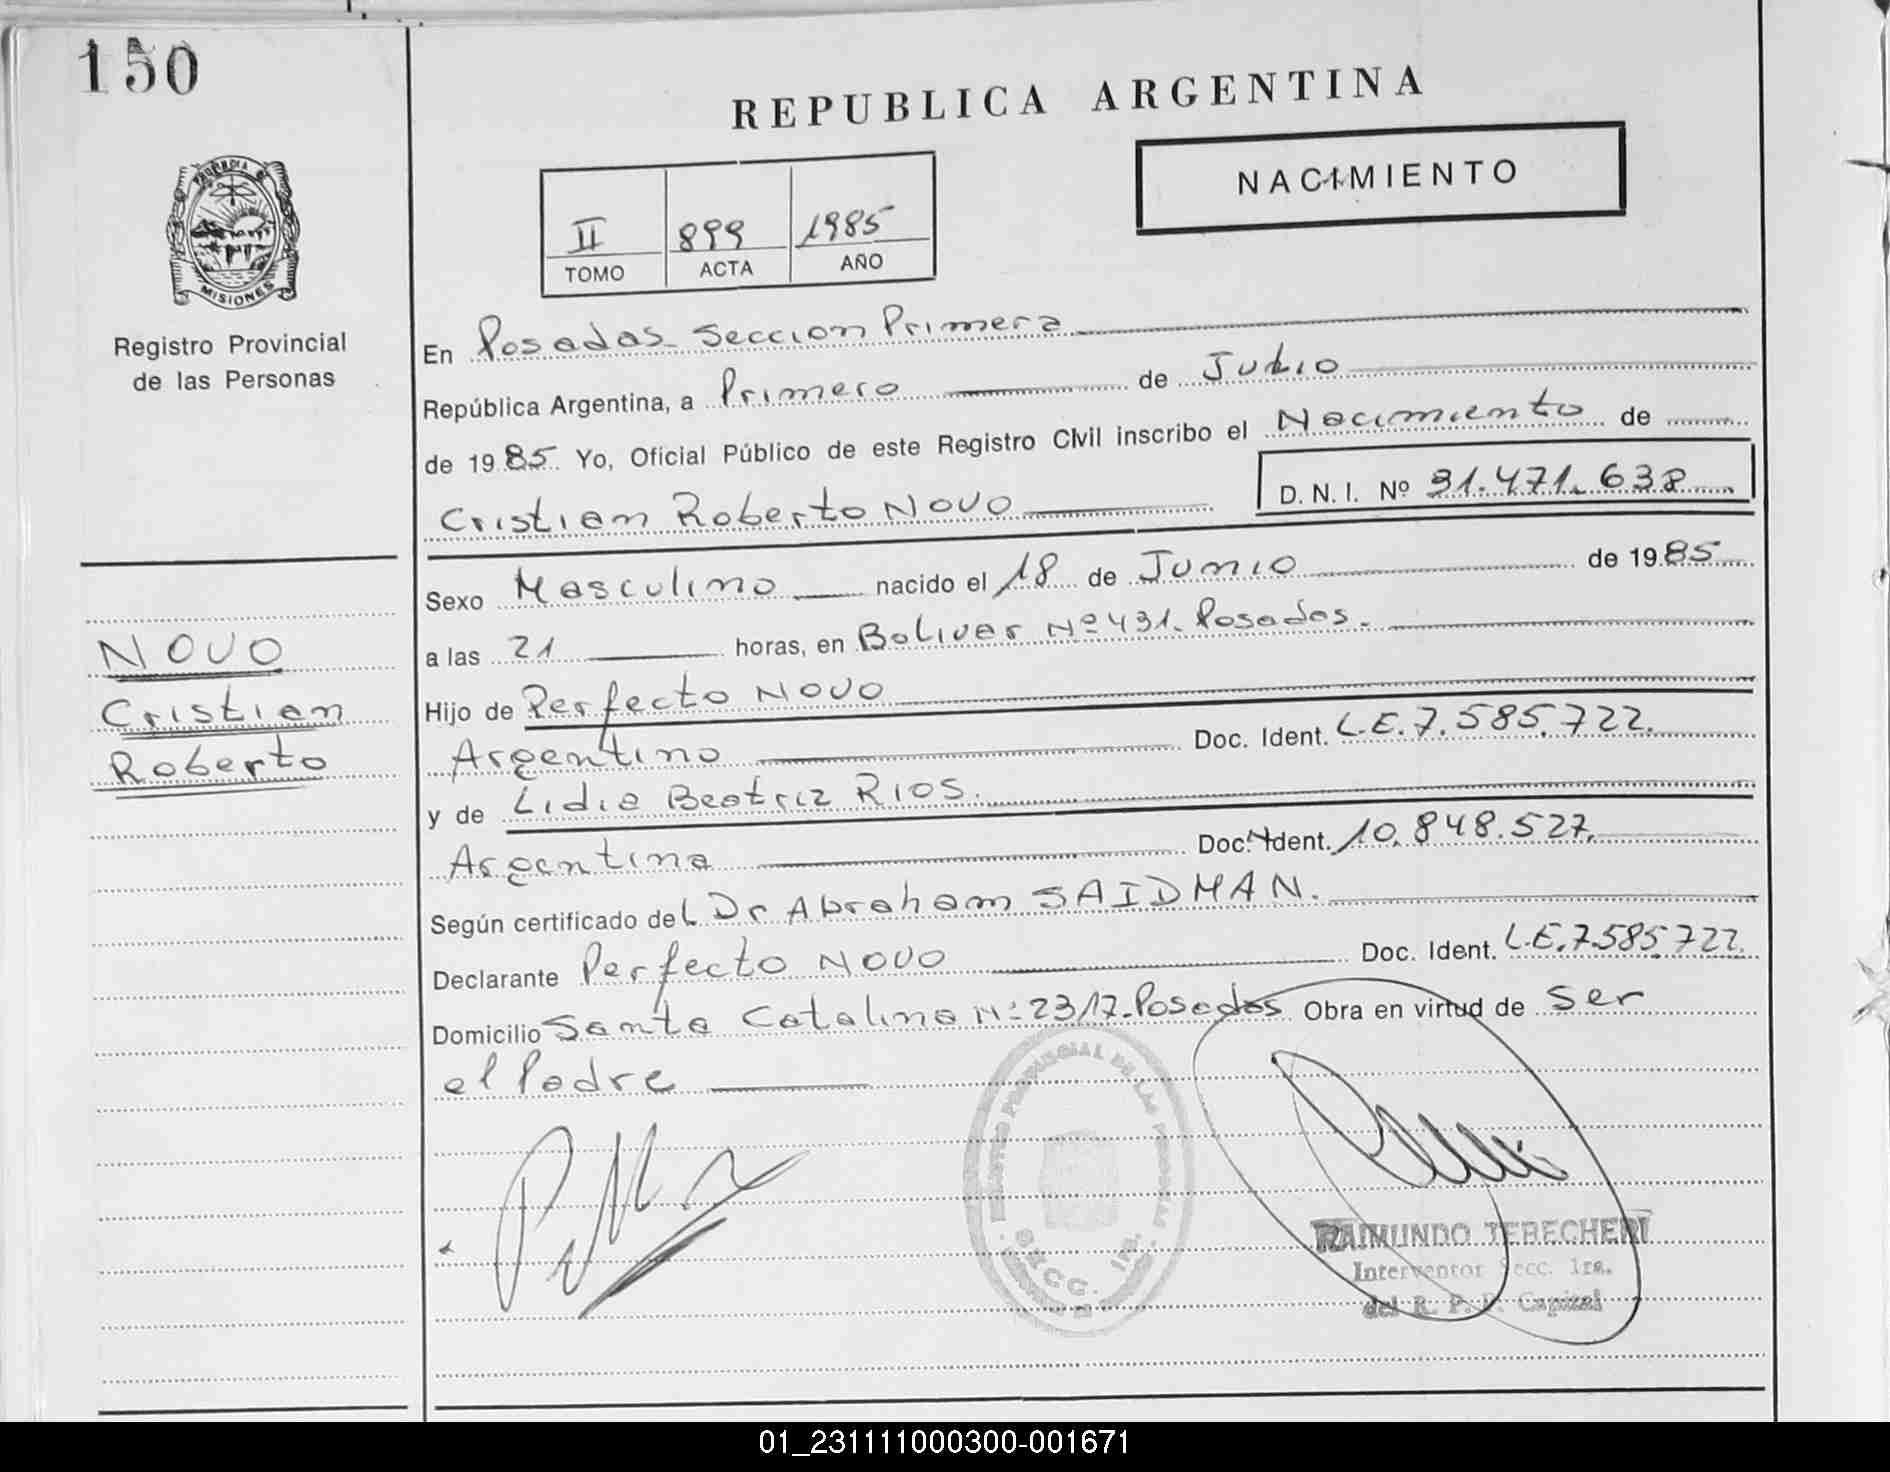 150
REPUBLICA ARGENTINA
NACIMIENTO
II 899 1985
TOMO ACTA AÑO
PROVINCIA DE
MISIONES
Registro Provincial
de las Personas
En Posadas Seccion Primera
República Argentina, a Primero de Julio
de 1985 Yo, Oficial Público de este Registro Civil inscribo el Nacimiento de
Cristian Roberto NOVO D.N.I. Nº 31.471.638
Sexo Masculino nacido el 18 de Junio de 1985
a las 21 horas, en Bolivar Nº 431. Posadas.
NOVO
Cristian
Roberto
Hijo de Perfecto NOVO
Argentino Doc. Ident. L.E. 7.585.722.
y de Lidia Beatriz RIOS.
Argentina Doc. Ident. 10.848.527.
Según certificado del Dr Abraham SAIDMAN.
Declarante Perfecto NOVO Doc. Ident. L.E. 7.585.722.
Domicilio Santa Catalina Nº 2317. Posadas Obra en virtud de Ser
el Padre
REGISTRO PROVINCIAL DE LAS PERSONAS
SECC. 1ra.
RAIMUNDO TERECHERI
Interventor Secc. 1ra.
del R. P. P. Capital
01_231111000300-001671